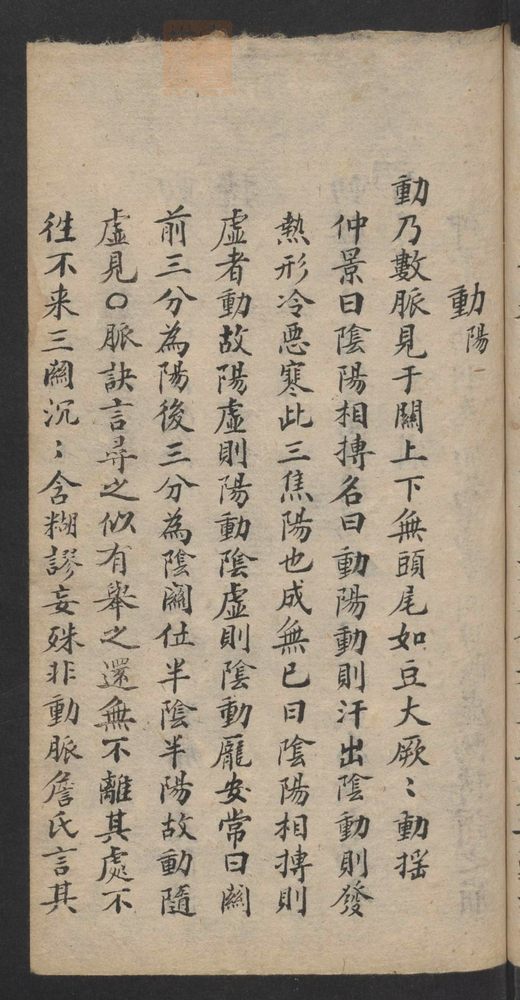 動陽
動乃數脈見于關上下無頭尾如豆大厥〻動揺
仲景曰陰陽相摶名曰動陽動則汗出陰動則發
熱形冷惡寒此三焦陽也成無已曰陰陽相摶則
虛者動故陽虛則陽動陰虛則陰動龐安常曰關
前三分為陽後三分為陰關位半陰半陽故動隨
虛見〇脈訣言尋之似有舉之還無不離其處不
徃不来三關沉〻含糊謬妄殊非動脈詹氏言其